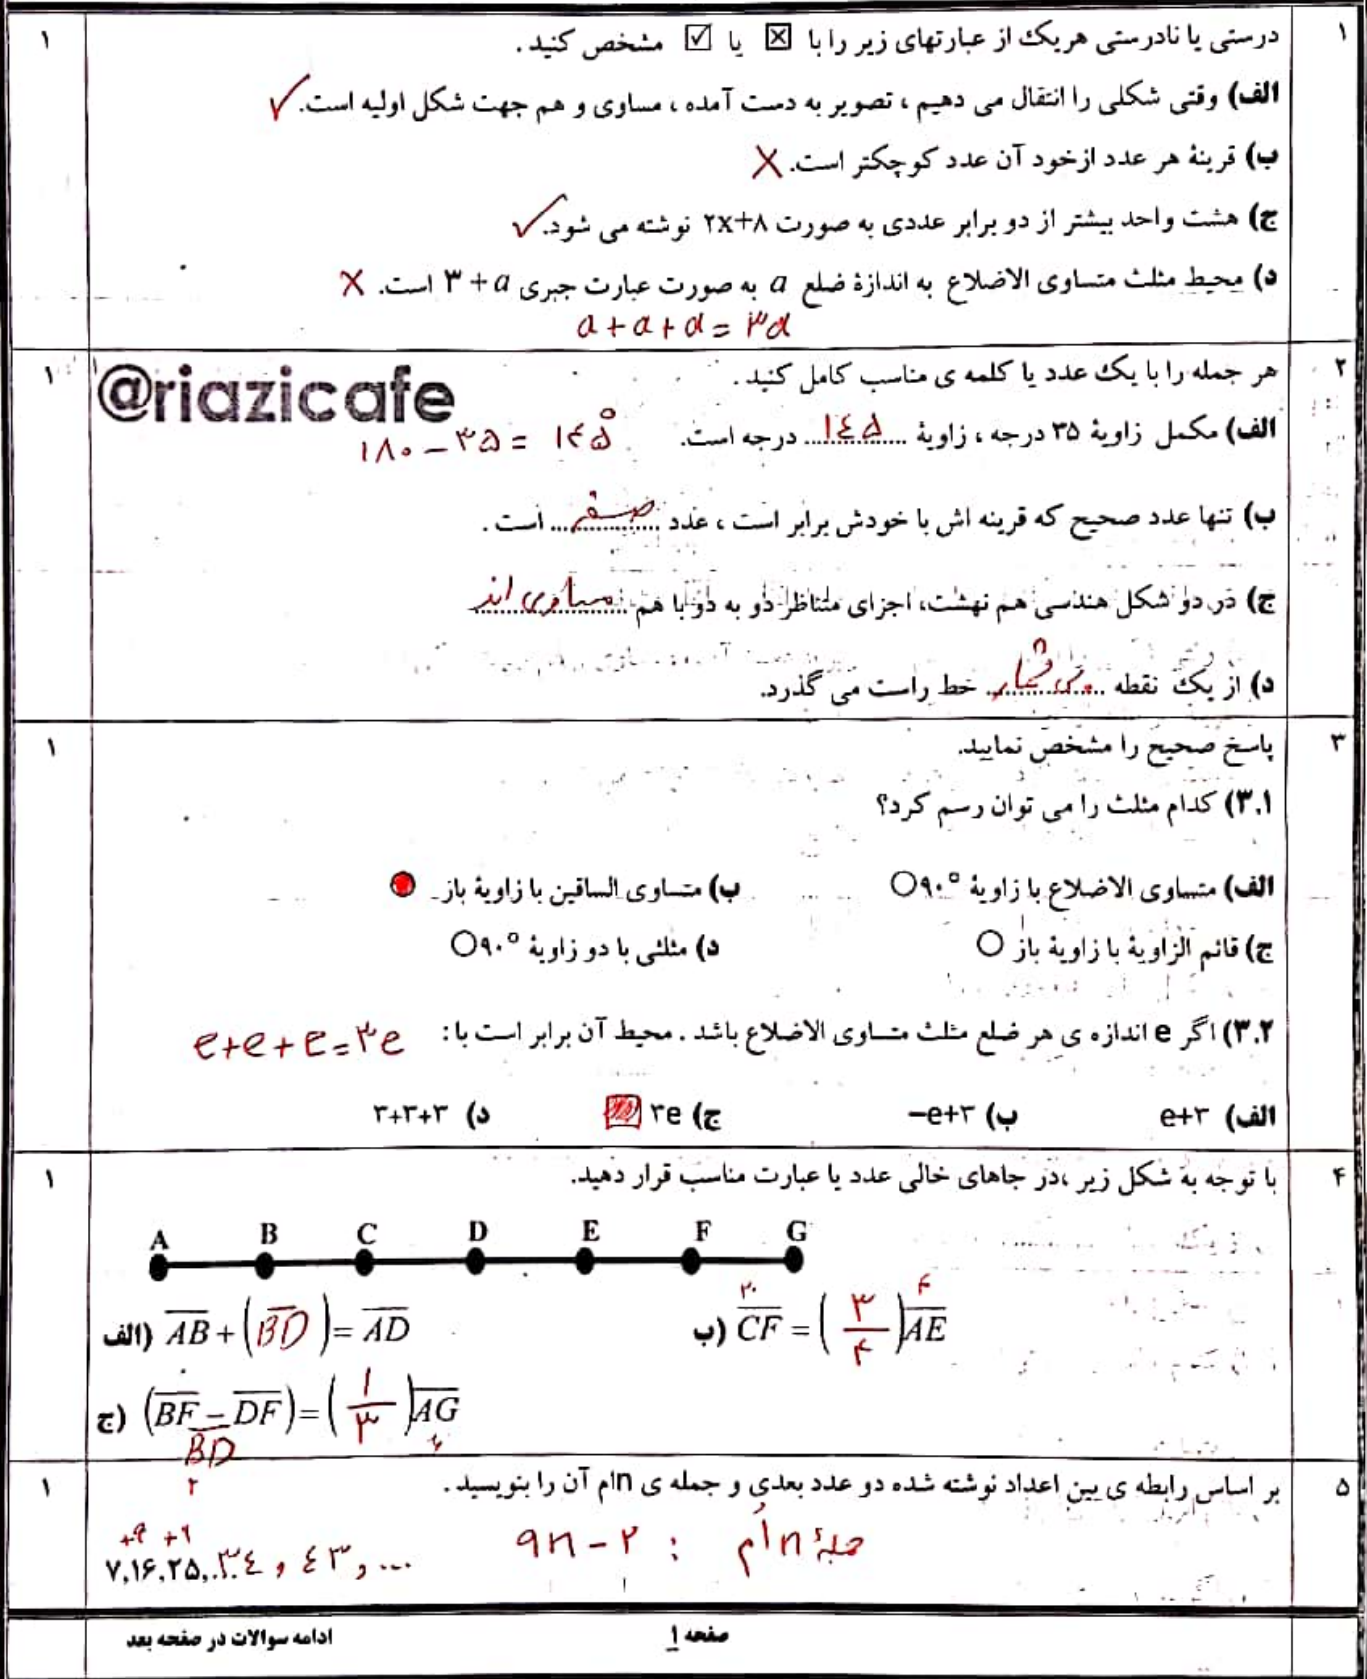 ۱ درستی یا نادرستی هریک از عبارتهای زیر را با ☒ یا ☑ مشخص کنید . ۱
الف) وقتی شکلی را انتقال می دهیم ، تصویر به دست آمده ، مساوی و هم جهت شکل اولیه است. ✓
ب) قرینهٔ هر عدد ازخود آن عدد کوچکتر است. X
ج) هشت واحد بیشتر از دو برابر عددی به صورت ۲x+۸ نوشته می شود. ✓
د) محیط مثلث متساوی الاضلاع به اندازهٔ ضلع a به صورت عبارت جبری ۳ + a است. X
a + a + a = ۳a
۲ هر جمله را با یک عدد یا کلمه ی مناسب کامل کنید . ۱
@riazicafe
الف) مکمل زاویهٔ ۳۵ درجه ، زاویهٔ ...۱۴۵... درجه است. ۱۸۰ - ۳۵ = ۱۴۵°
ب) تنها عدد صحیح که قرینه اش با خودش برابر است ، عدد ...صفر... است .
ج) در دو شکل هندسی هم نهشت، اجزای متناظر دو به دو با هم ...مساوی اند...
د) از یک نقطه ...بی شمار... خط راست می گذرد.
۳ پاسخ صحیح را مشخص نمایید. ۱
۳.۱) کدام مثلث را می توان رسم کرد؟
الف) متساوی الاضلاع با زاویهٔ ۹۰° ○ ب) متساوی الساقین با زاویهٔ باز
ج) قائم الزاویهٔ با زاویهٔ باز ○ د) مثلثی با دو زاویهٔ ۹۰° ○
۳.۲) اگر e اندازه ی هر ضلع مثلث متساوی الاضلاع باشد . محیط آن برابر است با : e+e+e=۳e
الف) e+۳ ب) -e+۳ ج) ۳e د) ۳+۳+۳
۴ با توجه به شکل زیر ،در جاهای خالی عدد یا عبارت مناسب قرار دهید. ۱
A B C D E F G
الف) AB + (BD) = AD ب) CF = (۳/۴) AE ۳۰ ۴
ج) (BF - DF) = (۱/۳) AG
BD ۶
۲
۵ بر اساس رابطه ی بین اعداد نوشته شده دو عدد بعدی و جمله ی nام آن را بنویسید . ۱
+۹ +۹
۷,۱۶,۲۵,..۳۴ , ۴۳ , ... جملهٔ nاُم : ۹n - ۲
صفحه ۱ ادامه سوالات در صفحه بعد